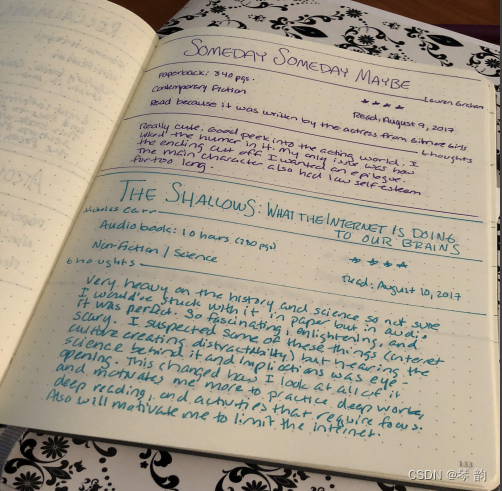 SOMEDAY SOMEDAY MAYBE
Lauren Graham
Paperback: 340 pgs.
Contemporary Fiction
★★★★
Read because it was written by the actress from Gilmore Girls
Read: August 9, 2017
thoughts
Really cute. Good peek into the acting world. I
liked the humor in it. My only issue was how
the ending cut off. I wanted an epilogue.
The main character also had low self-esteem
for too long.
THE SHALLOWS: WHAT THE INTERNET IS DOING
TO OUR BRAINS
Nicholas Carr
Audiobook: 10 hours (280 pgs)
★★★★
Non-Fiction / Science
Read: August 10, 2017
thoughts
Very heavy on the history and science so not sure
I would've stuck with it in paper but in audio
it was perfect. So fascinating, enlightening, and
scary. I suspected some of these things (interet
culture creating distractability) but hearing the
science behind it and implications was eye-
opening. This changed how I look at all of it
and motivates me more to practice deep work,
deep reading, and activities that require focus.
Also will motivate me to limit the internet.
133
CSDN @琴 韵